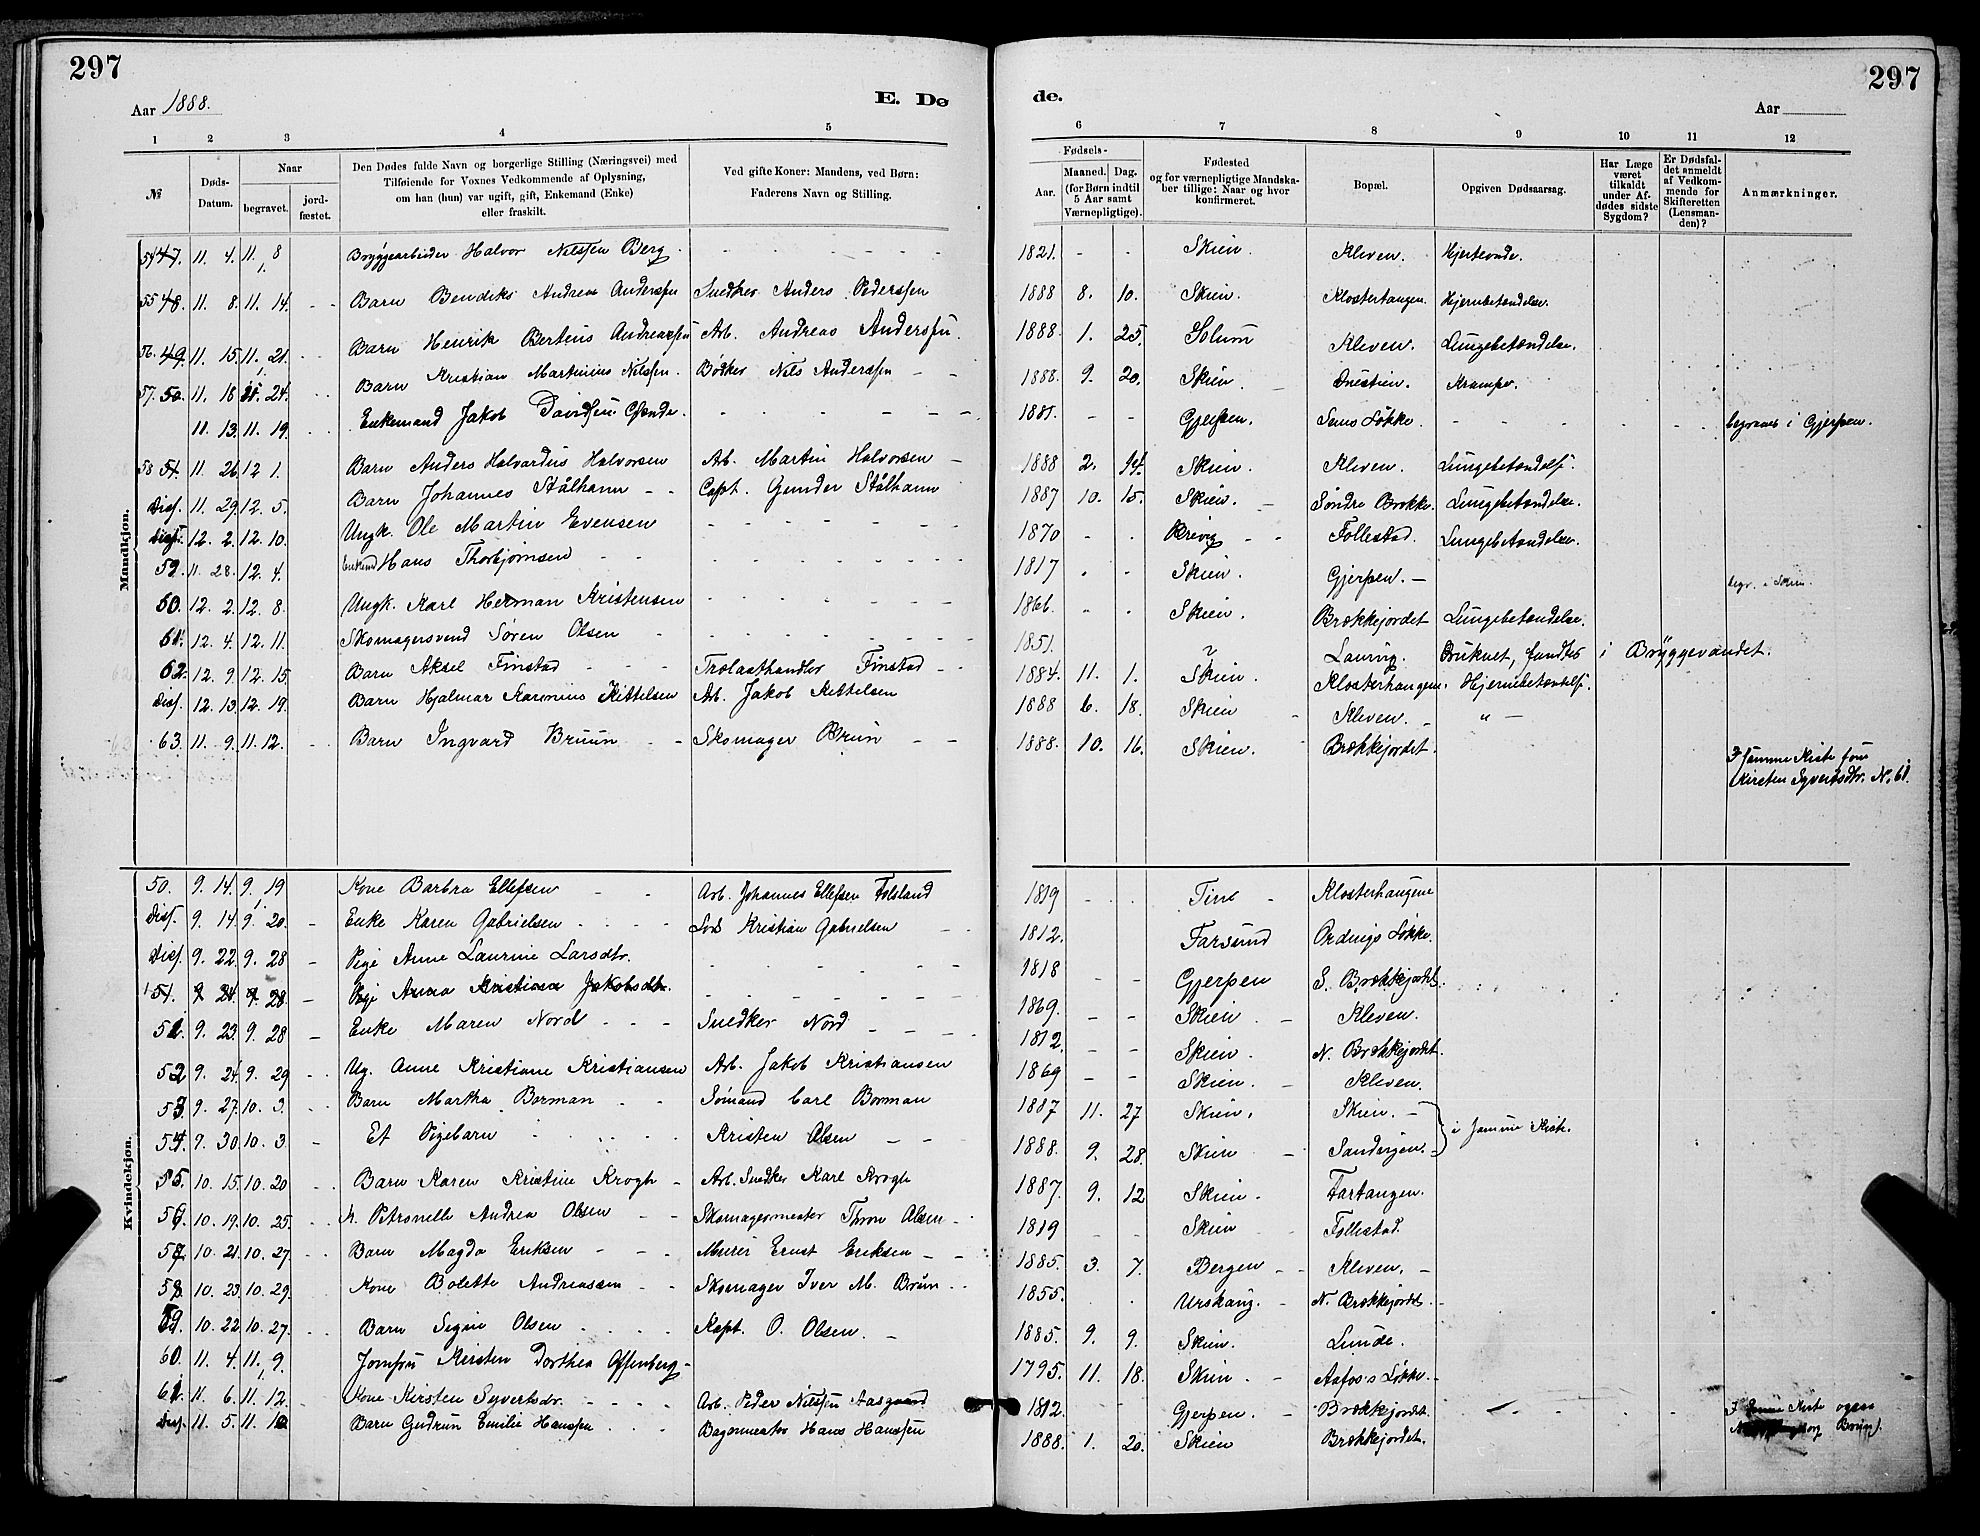 297
297
Aar 1888.
E. Dø
de.
Aar
1 2 3 4 5 6 7 8 9 10 11 12
№
Døds-Datum.
Naar
begravet.
jord-fæstet.
Den Dødes fulde Navn og borgerlige Stilling (Næringsvei) med
Tilføiende for Voxnes Vedkommende af Oplysning,
om han (hun) var ugift, gift, Enkemand (Enke)
eller fraskilt.
Ved gifte Koner: Mandens, ved Børn:
Faderens Navn og Stilling.
Fødsels-
Aar.
Maaned.
Dag.
(for Børn indtil
5 Aar samt
Værnepligtige).
Fødested
og for værnepligtige Mandska-
ber tillige: Naar og hvor
konfirmeret.
Bopæl.
Opgiven Dødsaarsag.
Har Læge
været
tilkaldt
under Af-
dødes sidste
Sygdom?
Er Dødsfal-
det anmeldt
af Vedkom-
mende for
Skifteretten
(Lensman-
den)?
Anmærkninger.
Mandkjøn.
54 47. 11. 4. 11. 8 Bryggearbeider Halvor Nilssen Berg. 1821. - - Skien. Kleven. Hjerteonde.
55 48. 11. 8. 11. 14. Barn Bendiks Andreas Anderssen Snedker Anders Pederssen 1888 8. 10. Skien. Klosterhaugen. Hjernebetændelse.
56. 49. 11. 15. 11. 21. Barn Henrik Berteus Andreassen Arb. Andreas Anderssen. 1888. 1. 25. Solum Kleven. Lungebetændelse.
57. 50. 11. 18 11. 24. Barn Kristian Martinius Nilssen. Bødker Nils Anderssen 1888. 9. 20. Skien. Krampe.
11. 13. 11. 19. Enkemand Jakob Davidsen 1881. - - Gjerpen. Løkke. begraves i Gjerpen.
58 51. 11. 26. 12 1. Barn Anders Halvardus Halvorsen Arb. Martin Halvorsen 1888 2. 14. Skien. Kleven. Lungebetændelse.
Diss. 11. 29. 12. 5. Barn Johannes Stålhann Capt. Gunder Stålhann 1887 10. 15. Skien. Søndre Brække. Lungebetændelse.
Diss. 12. 2. 12. 10. Ungk. Ole Martin Evensen 1870 - - Brevig Follestad. Lungebetændelse.
59. 11. 28. 12. 4. Enkemd Hans Thorbjørnsen 1817 Skien. Gjerpen. begr. i Skien.
60. 12. 2. 12. 8. Ungk. Karl Herman Kristensen 1866. Skien. Brækkejordet Lungebetændelse.
61. 12. 4. 12. 11. Skomagersvend Søren Olsen 1851. ? Laurvig. Druknet, fundtes i Bryggevandet.
62. 12. 9. 12. 15. Barn Aksel Finstad Trælasthandler Finstad 1884. 11. 1. Skien. Klosterhaugen. Hjernebetændelse.
Diss. 12. 13. 12. 19. Barn Hjalmar Karenius Kittelsen Arb. Jakob Kittelsen 1888 6. 18. Skien Kleven. "
63. 11. 9. 11. 12. Barn Ingvard Bruun Skomager Brun 1888. 10. 16. Skien. Brækkejordet.
I samme Kiste som
Kirsten Syvertsdtr. N. 61.
Kvindekjøn.
50. 9. 14. 9. 19 Kone Barbra Ellefsen Arb. Johannes Ellefsen 1819 Tinn Klosterhaugene
Diss. 9. 14. 9. 20. Enke Karen Gabrielsen Lods Kristian Gabrielsen 1812. Farsund Ordings Løkke.
Diss. 9. 22. 9. 28 Pige Anne Laurine Larsdtr. 1818 Gjerpen S. Brækkejordet.
51. 9 24. 9. 28 Pige Anna Kristiana Jakobsdtr. 1869. Skien Kleven.
51. 9. 23. 9. 28 Enke Maren Nord Snedker Nord 1812. Skien. N. Brækkejordet.
52 9. 24. 9. 29 Ug. Anne Kristiane Kristiansen Arb. Jakob Kristiansen 1869 Skien. Kleven.
53 9. 27. 10. 3. Barn Martha Borman Sømand Carl Borman 1887 11. 27 Skien. Skien.
i samme Kiste.
54. 9. 30. 10. 3. Et Pigebarn Kristen Olsen 1888. 9. 28. Skien
55. 10. 15. 10. 20 Barn Karen Kristine Krogh Arb. Snedker Karl Krogh 1887. 9. 12 Skien. Fartangen.
56. 10. 19. 10. 25. K. Petronelle Andrea Olsen Skomagermester Thron Olsen 1819 Skien Follestad.
57. 10. 21. 10. 27. Barn Magda Eriksen Murer Ernst Eriksen 1885. 3. 7. Bergen Kleven.
58. 10. 23. 10. 29. Kone Bolette Andreassen Skomager Iver M. Brun 1855. Urskoug. N. Brækkejordet.
59. 10. 22 10. 27. Barn Signe Olsen Kapt. O. Olsen. 1885. 9. 9. Skien. Lunde.
60. 11. 4. 11. 9. Jomfru Kirsten Dorthea Offenberg 1795. 11. 18. Skien. Løkke.
61. 11. 6. 11. 12. Kone Kirsten Syvertsdr. Arb. Peder Nilssen Aasgaard 1812. Gjerpen. Brækkejordet.
I samme Kiste
Brun).
Diss. 11. 5. 11. 10 Barn Gudrun Emilie Hanssen Bagermester Hans Hanssen 1888. 1. 20. Skien Brækkejordet.